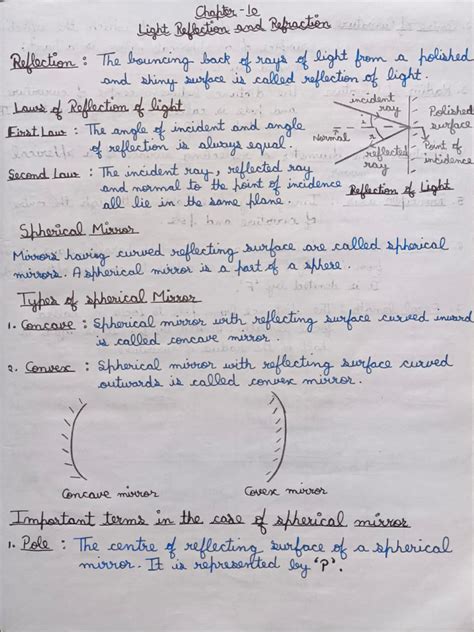 Chapter - 10
Light Reflection and Refraction
Reflection : The bouncing back of rays of light from a polished
and shiny surface is called reflection of light.
Laws of Reflection of light
First Law : The angle of incident and angle
of reflection is always equal.
Second Law : The incident ray, reflected ray
and normal to the point of incidence
all lie in the same plane.
incident
ray
Polished
surface
Normal
i
r
reflected
ray
Point of
intidence
Reflection of Light
Spherical Mirror
Mirrors having curved reflecting surface are called spherical
mirrors. A spherical mirror is a part of a sphere.
Types of spherical Mirror
1. Concave : Spherical mirror with reflecting surface curved inward
is called concave mirror.
2. Convex : Spherical mirror with reflecting surface curved
outwards is called convex mirror.
Concave mirror
Covex mirror
Important terms in the case of spherical mirror
1. Pole : The centre of reflecting surface of a spherical
mirror. It is represented by 'P'.